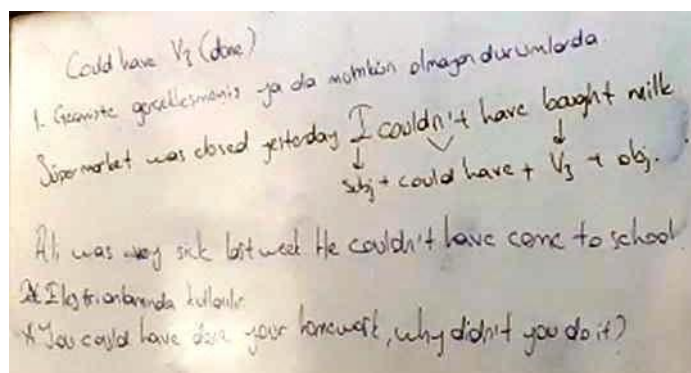 Could have V3 (done)
1. Geçmişte gerçekleşmemiş ya da mümkün olmayan durumlarda.
Süpermarket was closed yesterday I couldn't have bought milk
subj + could have + V3 + obj.
Ali was very sick last week He couldn't have come to school.
Eleştirilerimizde kullanılır.
* You could have done your homework, why didn't you do it?